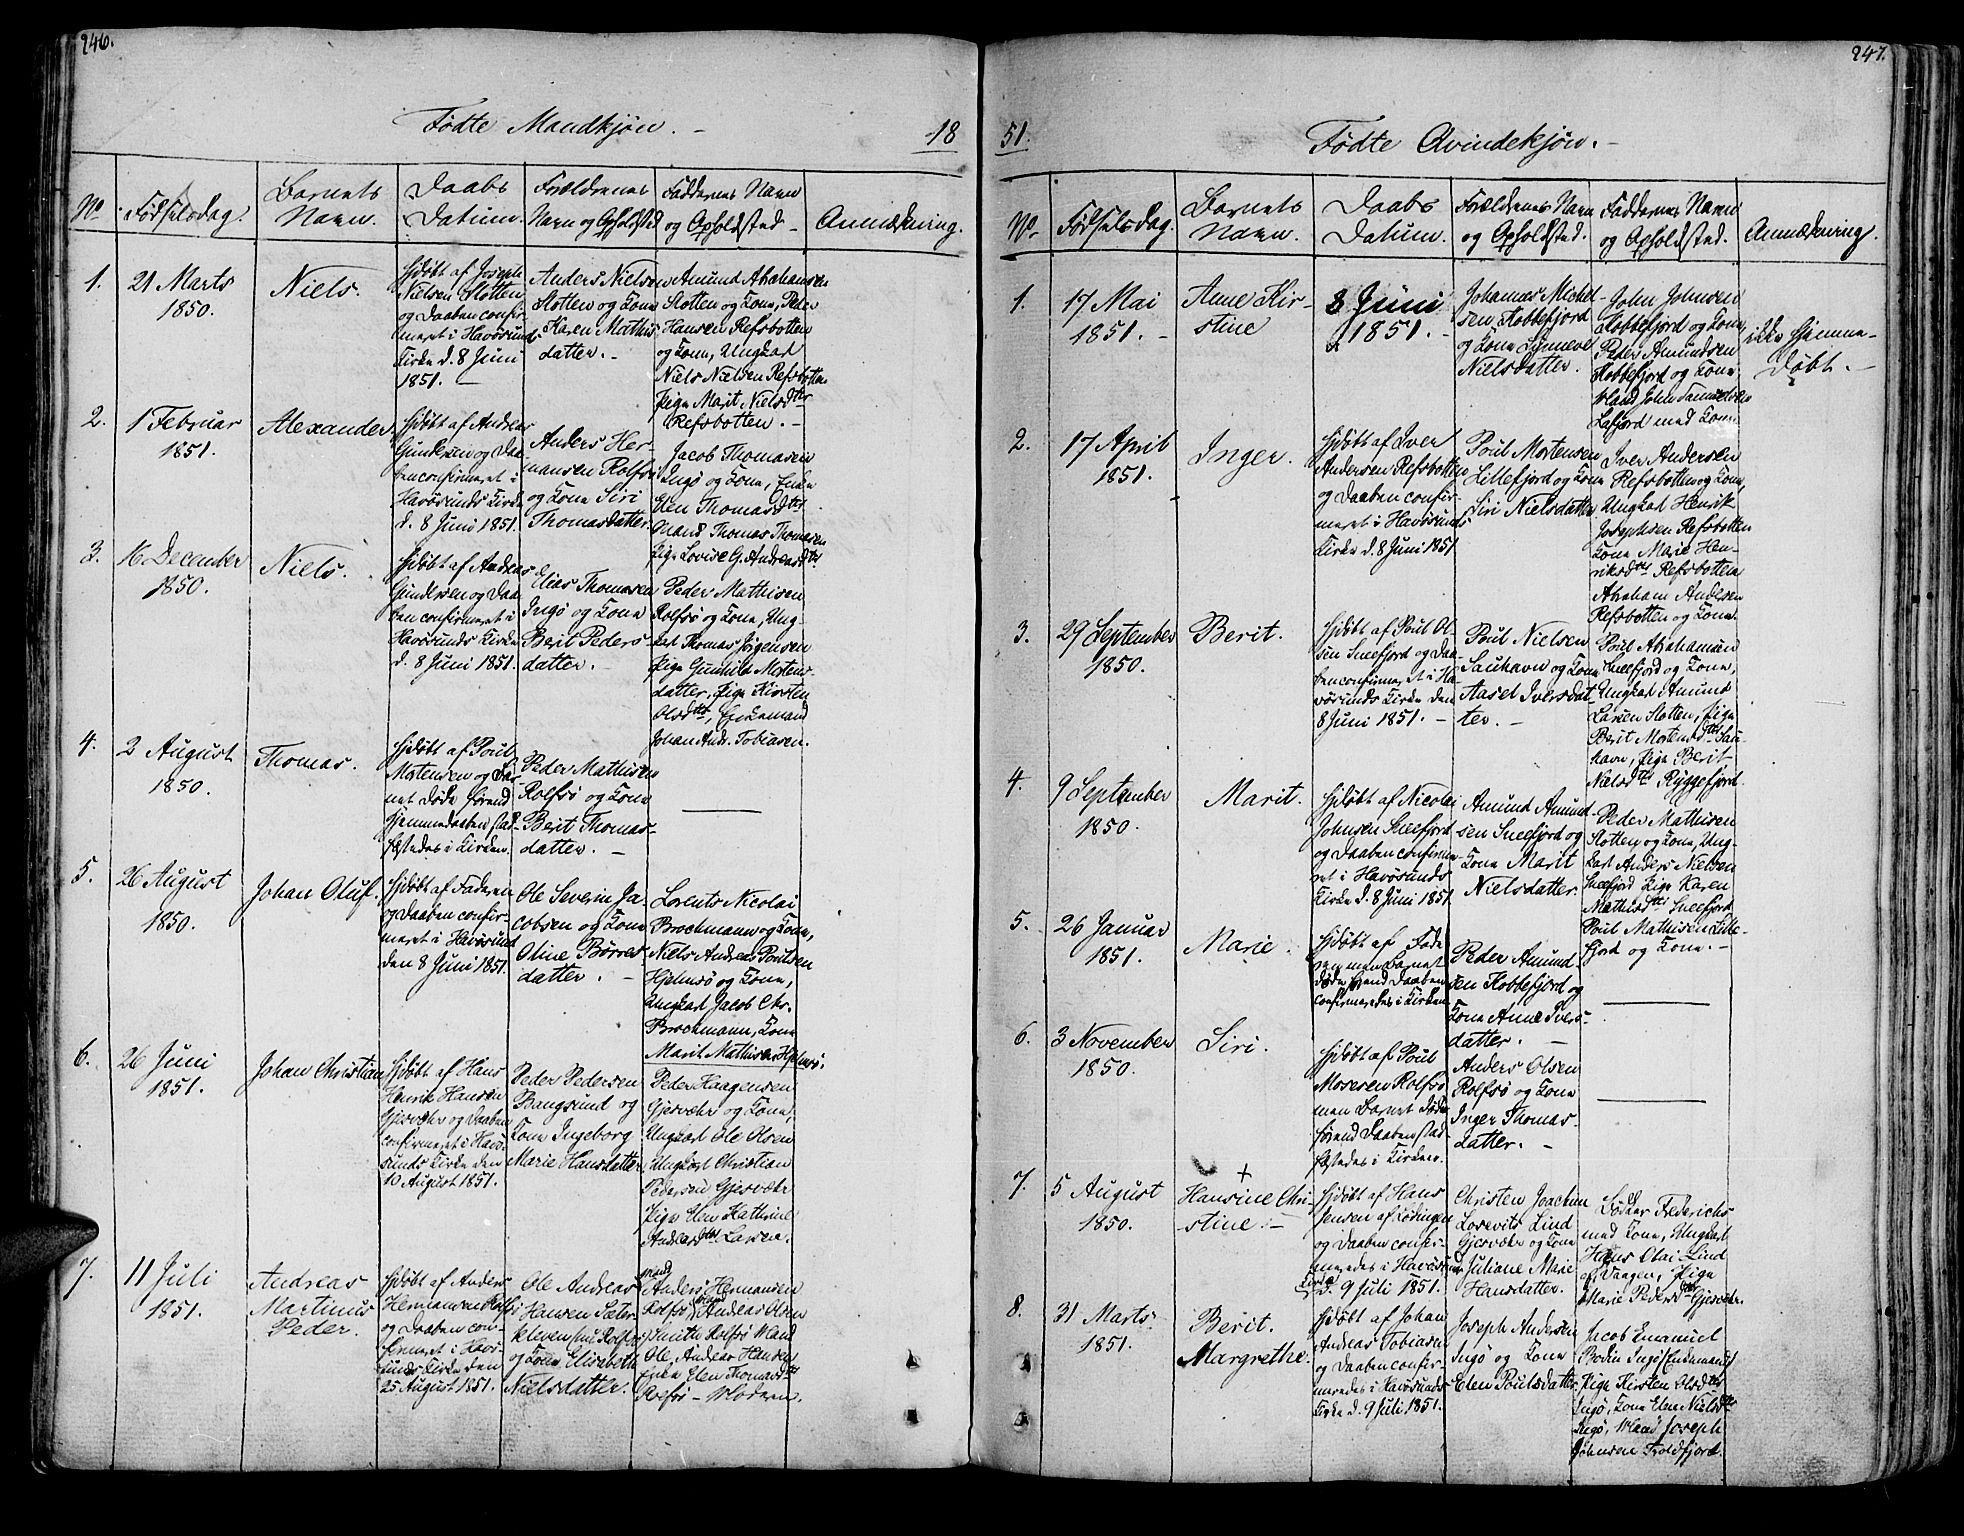 246.
Fødte Mandkjøn. -
18
No
Fødselsdag.
Barnets
Navn.
Daabs
Datum.
Forældrenes
Navn og Opholdsted
Faddernes Navn
og Opholdsted -
Anmærkning.
1.
21 Marts
1850.
Niels.
Hjdøbt af Joseph
Nielsen Slotten
og Daaben confir-
meret i Havøsunds
Kirke d. 8 Juni
1851. -
Anders Nielsen
Slotten og Kone
Karen Mathis
datter. -
Amund Abrahamsen
Slotten og Kone, Peder
Hansen Refsbotten
og Kone, Ungkarl
Niels Nielsen Refsbotten
Pige Marit Nielsdtr
Refsbotten. -
2.
1 Februar
1851.
Alexander
Hjdøbt af Andreas
Gundersen og Daa-
ben confirmeret i
Havøsunds Kirke
d. 8 Juni 1851.
Anders Her-
mansen Rolfsø
og Kone Siri
Thomasdatter.
Jacob Thomasen
Ingø og Kone, Enke
Elen Thomasdtr
Mand Thomas Thomasen
Pige Lovise G. Andreasdtr
3.
16 December
1850.
Niels.
Hjdøbt af Andreas
Gundersen og Daa-
ben confirmeret i
Havøsunds Kirke
d. 8 Juni 1851.
Elias Thomasen
Ingø og Kone
Berit Peders
datter. -
Peder Mathisen
Rolfsø og Kone, Ung-
karl Thomas Jörgensen
Pige Gunhild Mortens-
datter, Pige Kirsten
Olsdtr, Enkemand
Johan Andr. Tobiasen.
4.
2 August
1850.
Thomas.
Hjdøbt af Poul
Mortensen og Bar-
net døde førend
Hjemmedaaben stad-
fæstedes i Kirken.
Peder Mathisen
Rolfsø og Kone
Berit Thomas-
datter. -
5.
26 August
1850.
Johan Oluf.
Hjdøbt af Faderen
og Daaben confir-
meret i Havøsund
den 8 Juni 1851.
Ole Severin Ja-
cobsen og Kone
Oline Børres
datter. -
Lorents Nicolai
Brochmann og Kone,
Niels Andreas Poulsen
Hjelmsø og Kone,
Ungkarl Jacob Chr.
Brochmann, Kone
Marit Mathisdtr Hjelmsø.
6.
26 Juni
1851.
Johan Christian
Hjdøbt af Hans
Henrik Hansen
Gjesvær og Daaben
confirmeret i Havø-
sunds Kirke den
10 August 1851.
Peder Pedersen
Bangsund og
Kone Ingeborg
Marie Hansdatter
Peder Haagensen
Gjesvær og Kone,
Ungkarl Ole Olsen
Ungkarl Christian
Pedersen Gjesvær
Pige Elen Kathrine
Andersdtr Larsen.
7.
11 Juli
1851.
Andreas
Martinus
Peder.
Hjdøbt af Anders
Hermansen Rolfsø
og Daaben con-
firmeret i Havø-
sunds Kirke den
25 August 1851.
Ole Andreas
Hansen Sæter
kleven nu Rolfsø
og Kone Elisabeth
Nielsdatter.
Mand
Anders Hermansen
Rolfsø, Andreas Olsen
Smith Rolfsø Mand
Ole Andreas Hansen
Enke Elen Thomasdtr
Rolfsø - Moderen.
247.
51.
Fødte Qvindekjøn. -
No.
Fødselsdag.
Barnets
Navn.
Daabs
Datum.
Forældrenes Navn
og Opholdsted.
Faddernes Navn
og Opholdsted.
Anmærkning.
1.
17 Mai
1851. -
Anne Kir-
stine
8 Juni
1851. -
Johannes Michel-
sen Kobbefjord
og Kone Synneve
Nielsdatter.
John Johnsen
Kobbefjord og Kone,
Peder Amundsen
Kobbefjord og Kone
Mand John Samuelsen
Lafjord med Kone
ikke hjemme-
døbt. -
2.
17 April
1851.
Inger.
Hjdøbt af Iver
Andersen Refsbotten
og Daaben confir-
meret i Havøsunds
Kirke d. 8 Juni 1851
Poul Mortensen
Lillefjord og Kone
Siri Nielsdatter
Iver Andersen
Refsbotten og Kone,
Ungkarl Henrik
Josephsen Refsbotten
Kone Marie Hen-
riksdtr Refsbotten
Abraham Andersen
Refsbotten og Kone.
3.
29 September
1850.
Berit.
Hjdøbt af Poul Ol-
sen Sneefjord og Daa-
ben confirmeret i Ha-
vøsunds Kirke den
8 Juni 1851. -
Poul Nielsen
Sauhavn og Kone
Aasel Iversdat-
ter. -
Poul Abrahamsen
Sneefjord og Kone,
Ungkarl Amund
Larsen Slotten, Pige
Berit Mortensdtr Sau-
havn, Pige Berit
Nielsdtr Ryggefjord.
4.
9 September
1850.
Marit.
Hjdøbt af Nicolai
Johnsen Sneefjord
og Daaben confirme-
ret i Havøsunds
Kirke d. 8 Juni 1851
Amund Amund-
sen Sneefjord og
Kone Marit
Nielsdatter.
Peder Mathisen
Slotten og Kone, Ung-
karl Anders Nielsen
Sneefjord Pige Karen
Mathisdtr Sneefjord
Poul Mathisen Lille-
fjord og Kone. -
5.
26 Januar
1851.
Marie.
Hjdøbt af Fade-
ren men Barnet
døde førend Daaben
confirmeredes i Kirken
Peder Amund-
sen Kobbefjord og
Kone Anne Ivers-
datter. -
6.
3 November
1850.
Siri.
Hjdøbt af Poul
Mosesen Rolfsø
men Barnet døde
førend Daaben stad-
fæstedes i Kirken.
Anders Olsen
Rolfsø og Kone
Inger Thomas-
datter. -
7.
5 August
1850.
+
Hansine Chri-
stine. -
Hjdøbt af Hans
Jensen af Lødingen
og Daaben confir-
meredes i Havøsunds
Kirke d. 9 Juli 1851.
Christen Joachim
Lorevits Lind
Gjesvær og Kone
Juliane Marie
Hansdatter.
Lodtær Frederichs
med Kone, Ungkarl
Hans Olai Lind
af Vaagen, Pige
Marie Pedersdtr Gjesvær.
8.
31 Marts
1851.
Berit.
Margrethe.
Hjdøbt af Johan
Andreas Tobiasen
og Daaben confir-
meredes i Havøsunds
Kirke d. 9 Juli 1851.
Joseph Andersen
Ingø og Kone
Elen Poulsdatter.
Jacob Emanuel
Bodin Ingø Enkemand
Pige Kirsten Olsdtr
Ingø, Kone Elen Nielsdtr
Ingø, Mand Joseph
Johnsen Troldfjord.